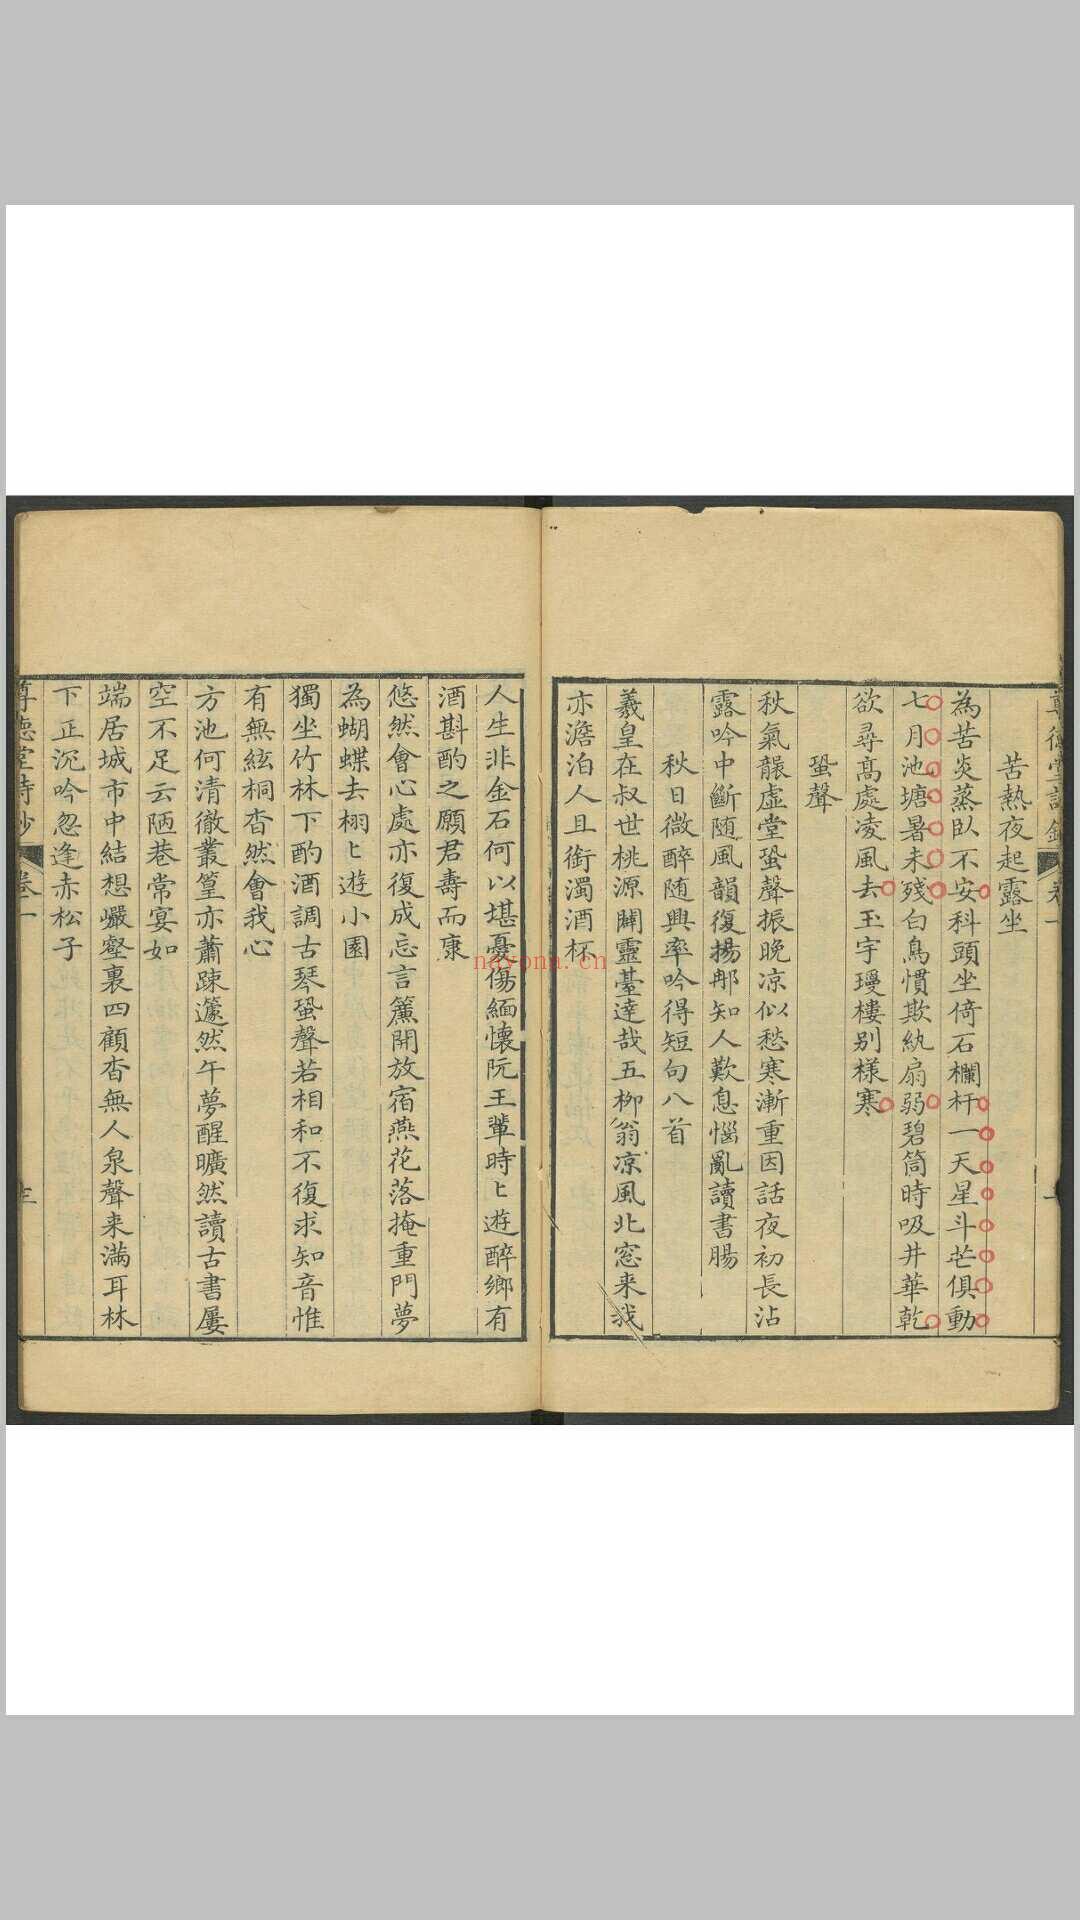 苦熱夜起露坐
為苦炎蒸臥不安科頭坐倚石欄杆一天星斗芒俱動
七月池塘暑未殘白鳥慣欺紈扇弱碧筒時吸井華乾
欲尋高處凌風去玉宇瓊樓別樣寒
蛩聲
秋氣報虛堂蛩聲振晚凉似愁寒漸重因話夜初長沾
露吟中斷随風韻復揚那知人歎息惱亂讀書腸
秋日微醉随興率吟得短句八首
羲皇在叔世桃源闢靈臺達哉五柳翁凉風北窓来我
亦澹泊人且銜濁酒杯
人生非金石何以堪憂傷緬懷阮王輩時〻遊醉鄉有
酒斟酌之願君壽而康
悠然會心處亦復成忘言簾開放宿燕花落掩重門夢
為蝴蝶去栩〻遊小園
獨坐竹林下酌酒調古琴蛩聲若相和不復求知音惟
有無絃桐杳然會我心
方池何清徹叢篁亦蕭踈蘧然午夢醒曠然讀古書屢
空不足云陋巷常宴如
端居城市中結想巖壑裏四顧杳無人泉聲来滿耳林
下正沉吟忽逢赤松子
尊德堂詩鈔 卷一
nayona.cn